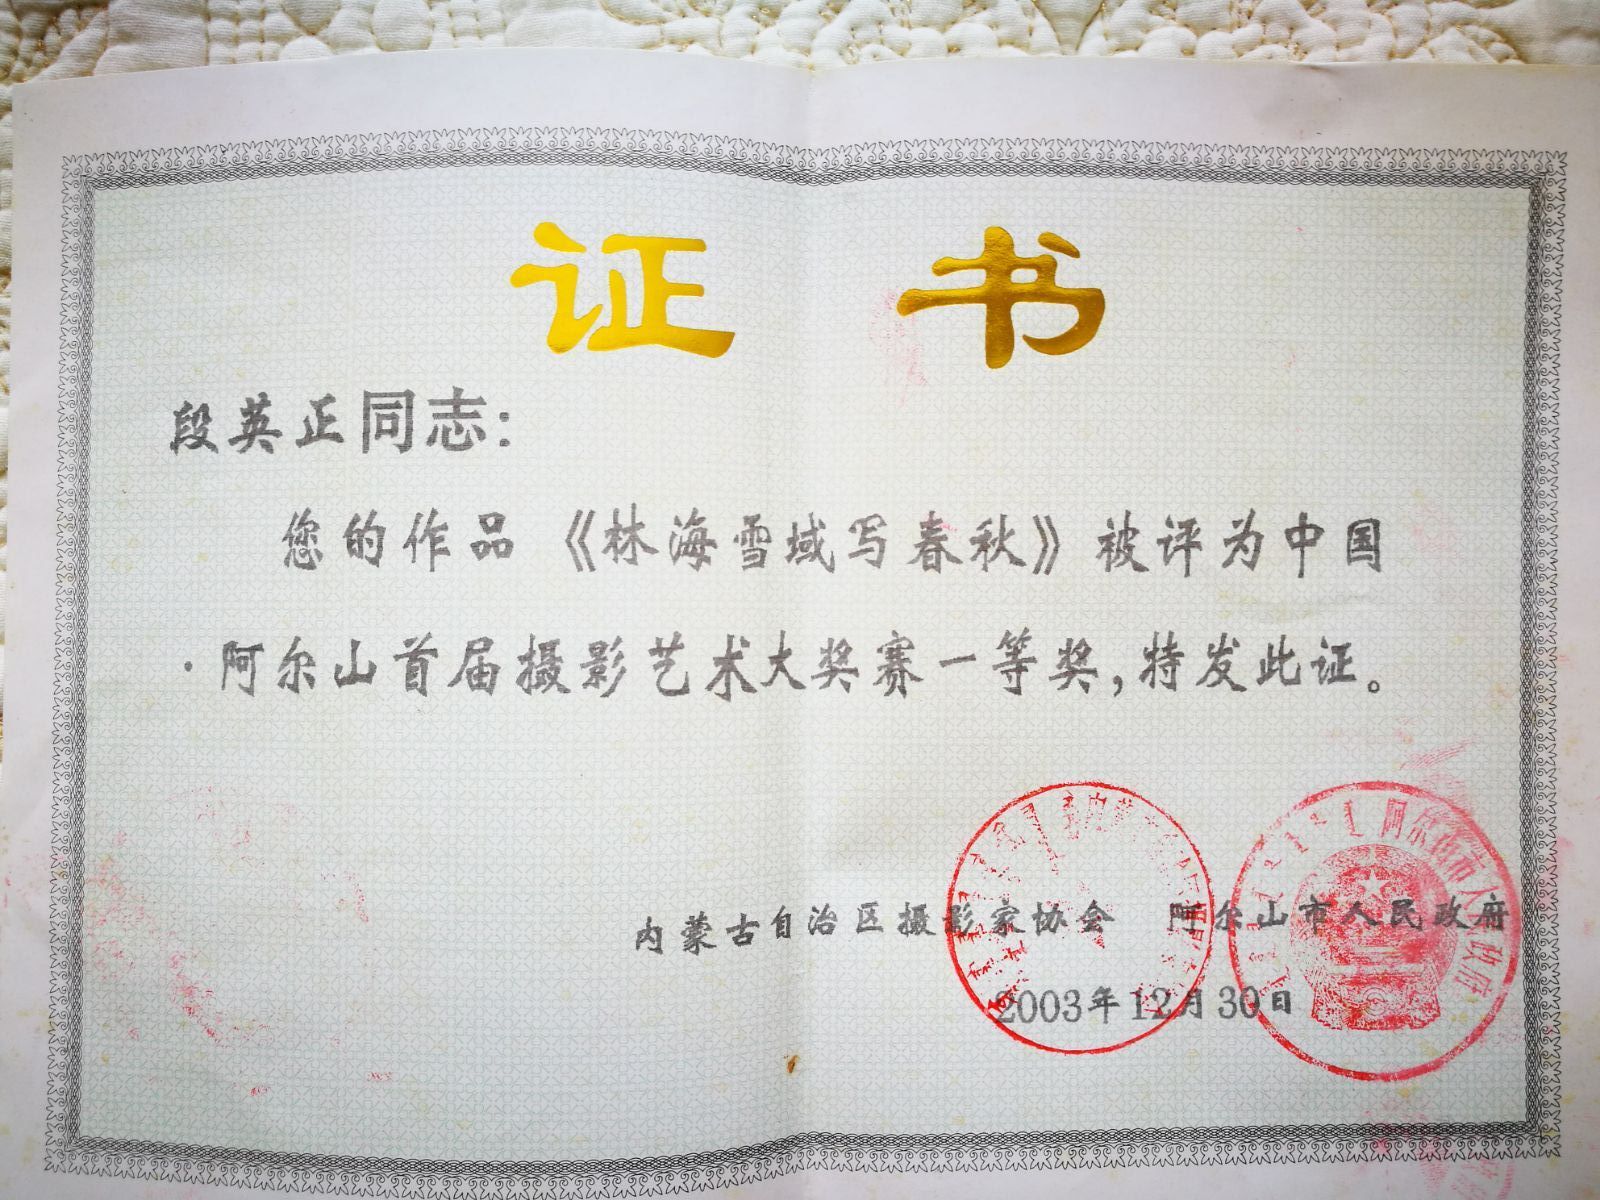 证书
段英正同志：
您的作品《林海雪域写春秋》被评为中国
·阿尔山首届摄影艺术大奖赛一等奖，特发此证。
内蒙古自治区摄影家协会 阿尔山市人民政府
2003年12月30日
阿尔山市人民政府